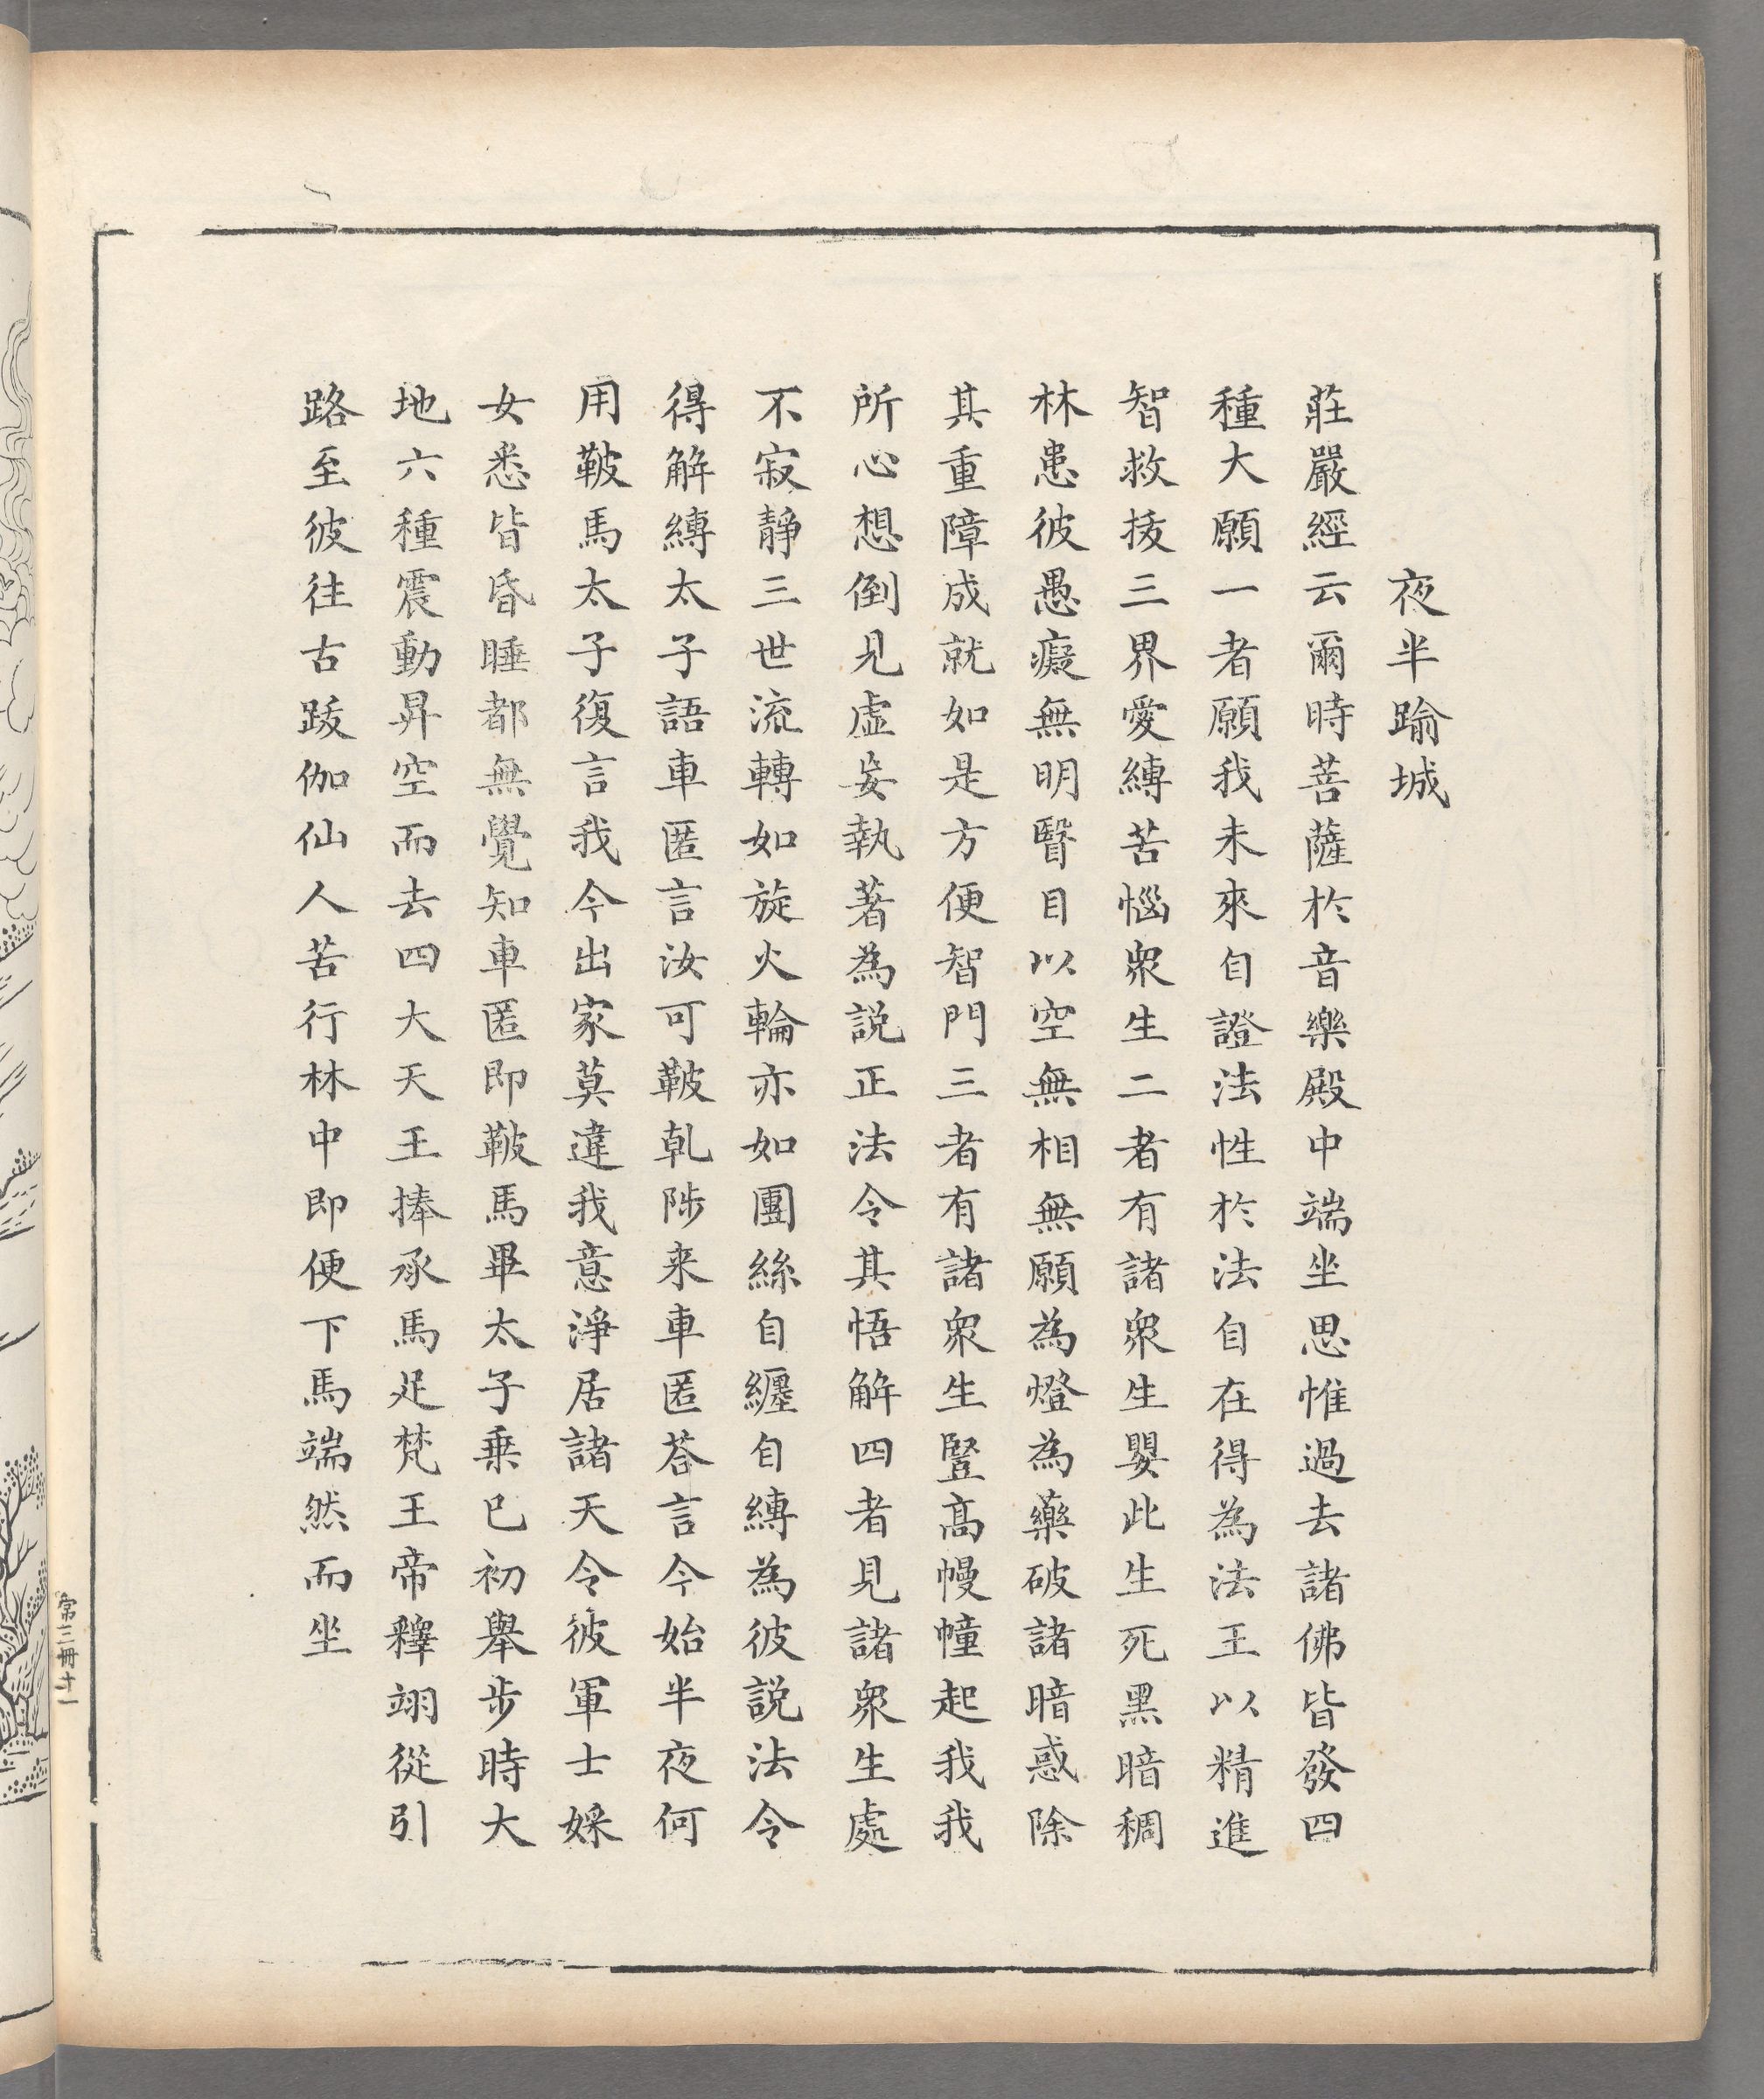 夜半踰城
莊嚴經云爾時菩薩於音樂殿中端坐思惟過去諸佛皆發四
種大願一者願我未來自證法性於法自在得為法王以精進
智救拔三界愛縛苦惱眾生二者有諸眾生嬰此生死黑暗稠
林患彼愚癡無明瞖目以空無相無願為燈為藥破諸暗惑除
其重障成就如是方便智門三者有諸眾生豎高幔幢起我我
所心想倒見虛妄執著為説正法令其悟解四者見諸眾生處
不寂靜三世流轉如旋火輪亦如團絲自纏自縛為彼説法令
得解縛太子語車匿言汝可鞁乹陟来車匿荅言今始半夜何
用鞁馬太子復言我今出家莫違我意淨居諸天令彼軍士婇
女悉皆昏睡都無覺知車匿即鞁馬畢太子乗已初舉步時大
地六種震動昇空而去四大天王捧承馬足梵王帝釋翊從引
路至彼往古跋伽仙人苦行林中即便下馬端然而坐
常三冊十一